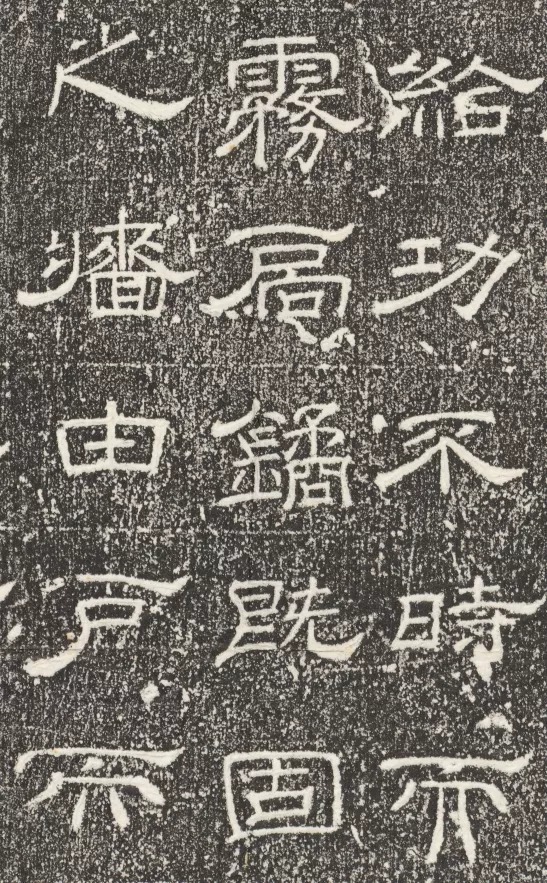 給功不時
霧扃鐍既固
之牆由戶